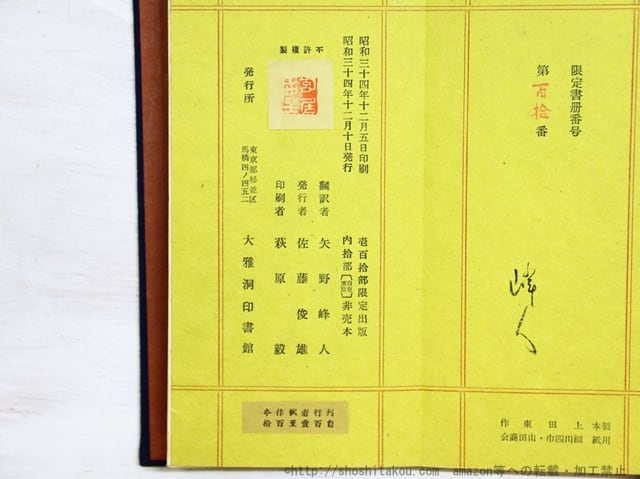 限定書册番号
第百拾番
峰人
製本 上田東作
用紙 細川四巾・山田商会
昭和三十四年十二月五日印刷
昭和三十四年十二月十日発行
壱百拾部限定出版
内拾部 非売本
不許複製
翻訳者 矢野峰人
発行者 佐藤俊雄
印刷者 萩原毅
発行所
東京都杉並区
馬橋四ノ四五二
大雅洞印書館
©http://shoshitakou.com amazon等への転載・加工禁止